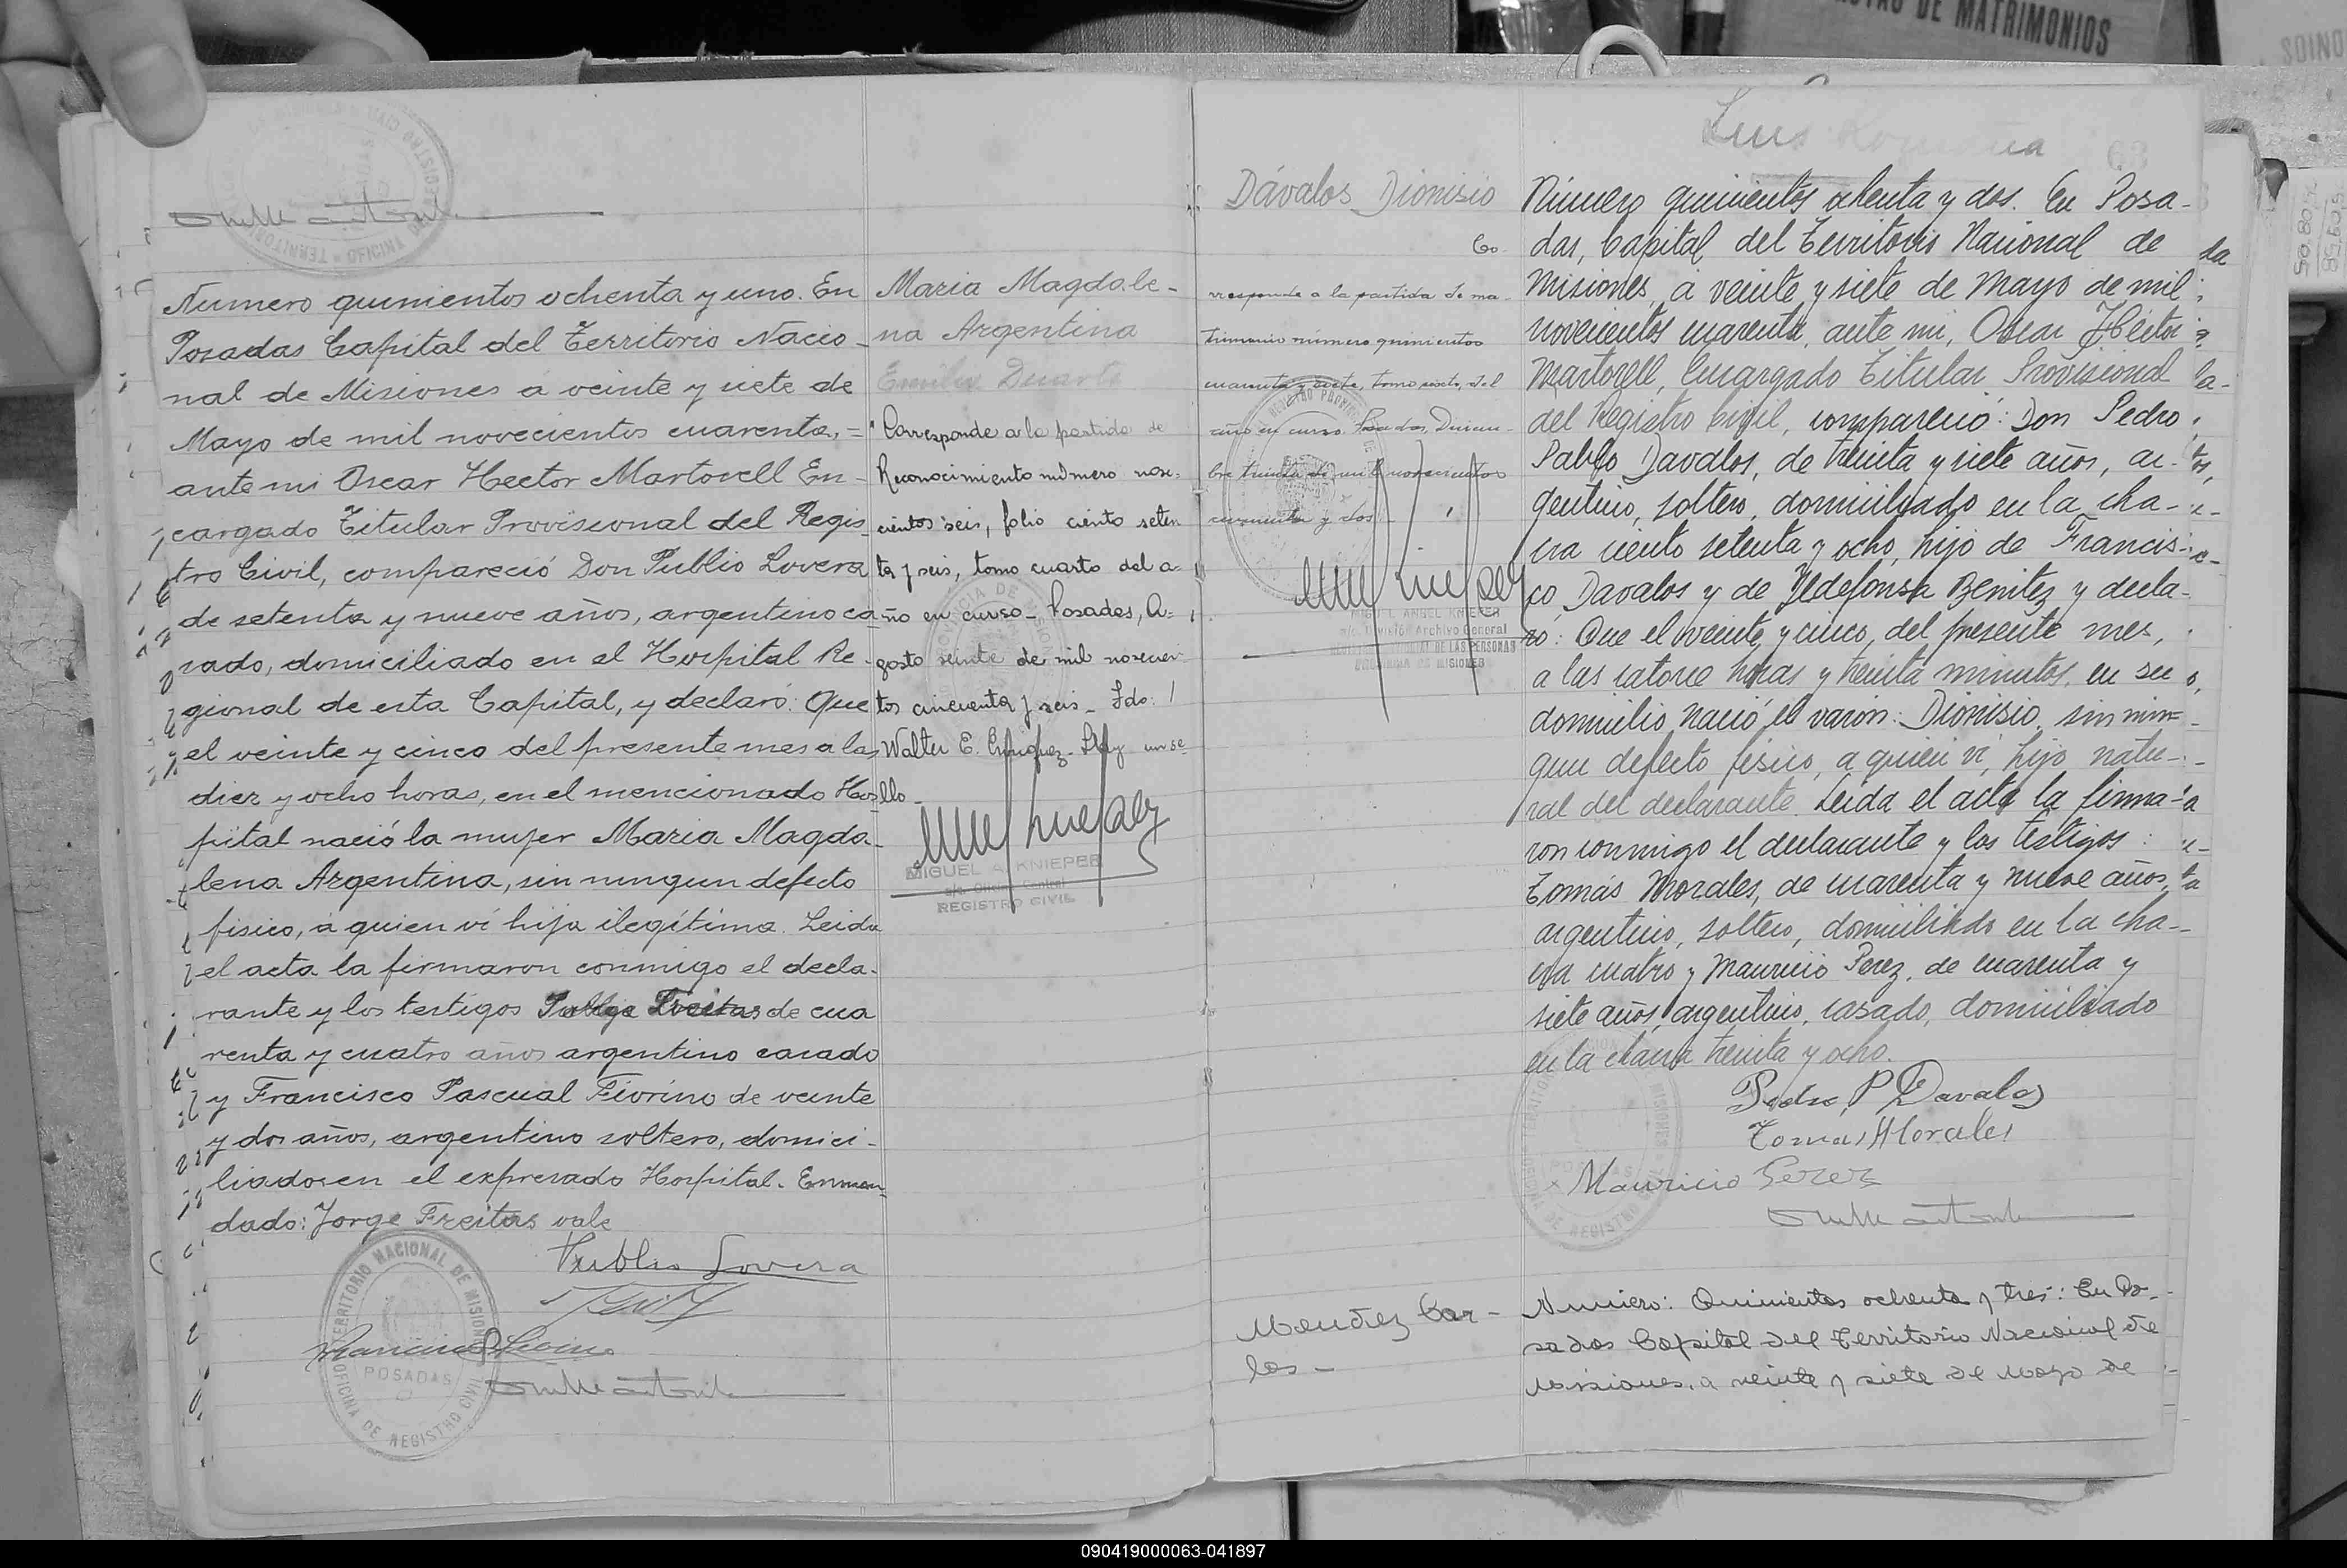 DE MATRIMONIOS
Numero quinientos ochenta y uno. En
Posadas Capital del Territorio Nacio-
nal de Misiones a veinte y siete de
Mayo de mil novecientos cuarenta,=
ante mi Oscar Hector Martorell En-
cargado Titular Provisional del Regis-
tro Civil, compareció Don Publio Lovera
de setenta y nueve años, argentino ca-
sado, domiciliado en el Hospital Re-
gional de esta Capital, y declaró: Que
el veinte y cinco del presente mes a las
diez y ocho horas, en el mencionado Hos-
pital nació la mujer Maria Magda-
lena Argentina, sin ningun defecto
fisico, á quien ví hija ilegítima. Leida
el acta la firmaron conmigo el decla-
rante y los testigos Freitas de cua
renta y cuatro años argentino casado
y Francisco Pascual Fiorino de veinte
y dos años, argentino soltero, domici-
liados en el expresado Hospital. Enmen-
dado: Jorge Freitas vale
Publio Lovera
OFICINA DE REGISTRO CIVIL TERRITORIO NACIONAL DE MISIONES
POSADAS
Maria Magdale-
na Argentina
Emilia Duarte
"Corresponde a la partida de
Reconocimiento número nove-
cientos seis, folio ciento seten
ta y seis, tomo cuarto del a-
ño en curso- Posadas, A-
gosto veinte de mil novecien
tos cincuenta y seis- Fdo:
Walter E. Hay un se-
llo-
MIGUEL A. KNIEPER
REGISTRO CIVIL
Dávalos Dionisio
Co-
rresponde a la partida de ma-
trimonio número quinientos
cuarenta y siete, tomo sexto, del
año en curso. Posadas, Diciem-
bre treinta de mil novecientos
cincuenta y dos-
MIGUEL ANGEL KNIEPER
División Archivo General
DE LAS PERSONAS
PROVINCIA DE MISIONES
Luis
63
Número quinientos ochenta y dos. En Posa-
das, Capital del Territorio Nacional de
Misiones, a veinte y siete de Mayo de mil
novecientos cuarenta, ante mi, Oscar Héctor
Martorell, Encargado Titular Provisional
del Registro Civil, compareció: Don Pedro
Pablo Davalos, de treinta y siete años, ar-
gentino, soltero, domiciliado en la cha-
cra ciento setenta y ocho, hijo de Francis-
co Davalos y de Yldefonsa Benitez y decla-
ró: Que el veinte y cinco, del presente mes,
a las catorce horas y treinta minutos, en su
domicilio nació el varón: Dionisio, sin nin-
gun defecto fisico, a quien vi, hijo natu-
ral del declarante. Leida el acta la firma-
ron conmigo el declarante y los testigos:
Tomás Morales, de cuarenta y nueve años,
argentino, soltero, domiciliado en la cha-
cra cuatro y Mauricio Perez, de cuarenta y
siete años, argentino, casado, domiciliado
en la chacra treinta y ocho.
Pedro P Davalos
Tomas Morales
Mauricio Perez
Mendez Car-
los-
Numero: Quinientos ochenta y tres: En Po-
sadas Capital del Territorio Nacional de
Misiones, a veinte y siete de Mayo de
090419000063-041897